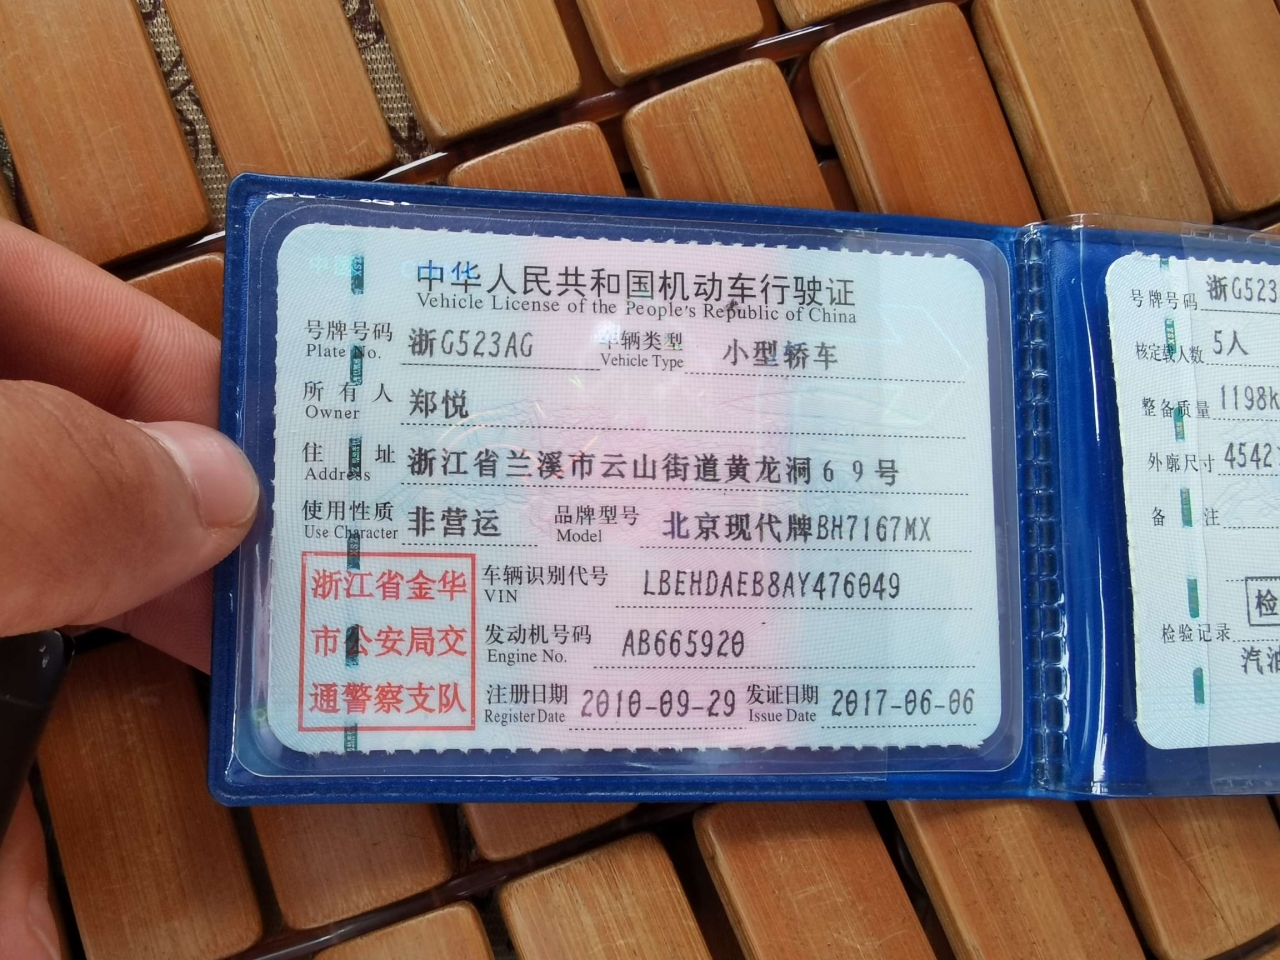 中华人民共和国机动车行驶证
Vehicle License of the People's Republic of China
号牌号码 浙G523AG 车辆类型 小型轿车
Plate No. Vehicle Type
所有人 郑悦
Owner
住址 浙江省兰溪市云山街道黄龙洞69号
Address
使用性质 非营运 品牌型号 北京现代牌BH7167MX
Use Character Model
浙江省金华
市公安局交
通警察支队
车辆识别代号 LBEHDAEB8AY476049
VIN
发动机号码 AB665920
Engine No.
注册日期 2010-09-29 发证日期 2017-06-06
Register Date Issue Date
号牌号码 浙G523
核定载人数 5人
整备质量 1198k
外廓尺寸 4542
备注
检
检验记录
汽油